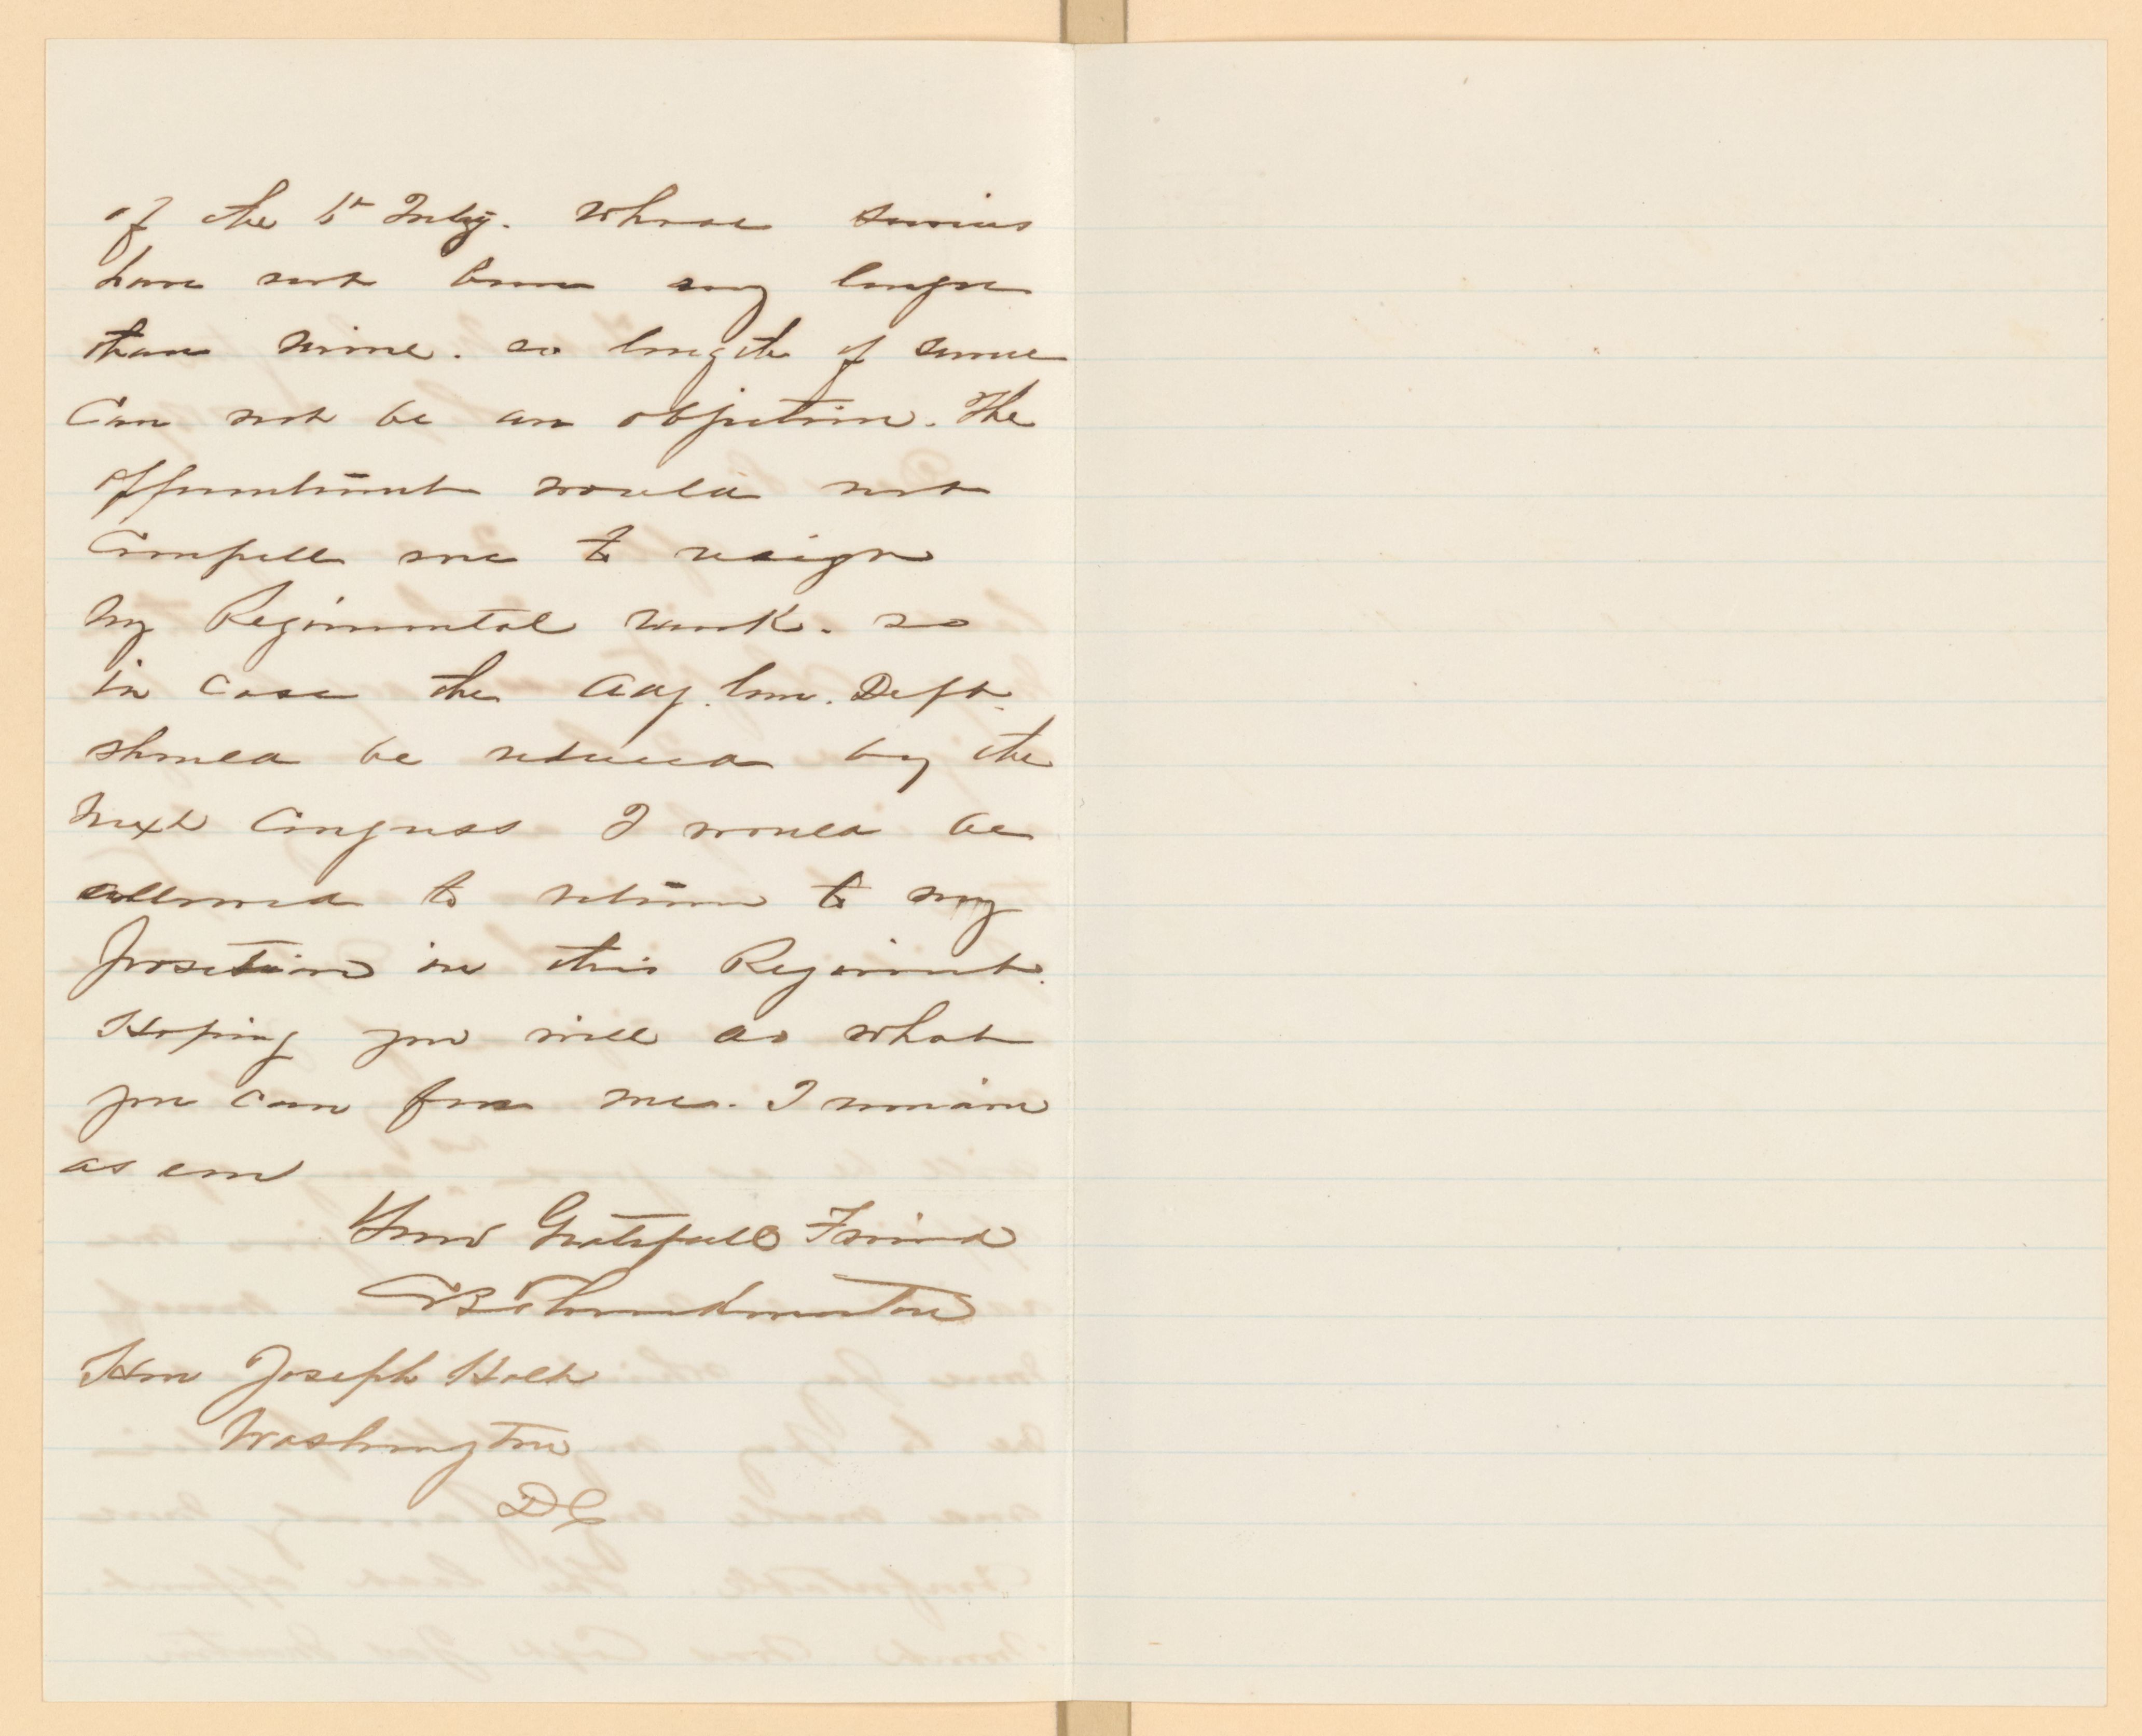 of the 6th Infty. whose services
have not been any longer
than mine. so length of service
Can not be an objection. The
appointment would not
Compell me to resign
my Regimental rank. so
in case the Adj. Gen. Dept.
should be reduced by the
next Congress I would be
allowed to return to my
position in this Regiment.
Hoping you will do what
you can for me. I remain
as ever
Your Gratefull Friend
Hon Joseph Holt
Washington
DC